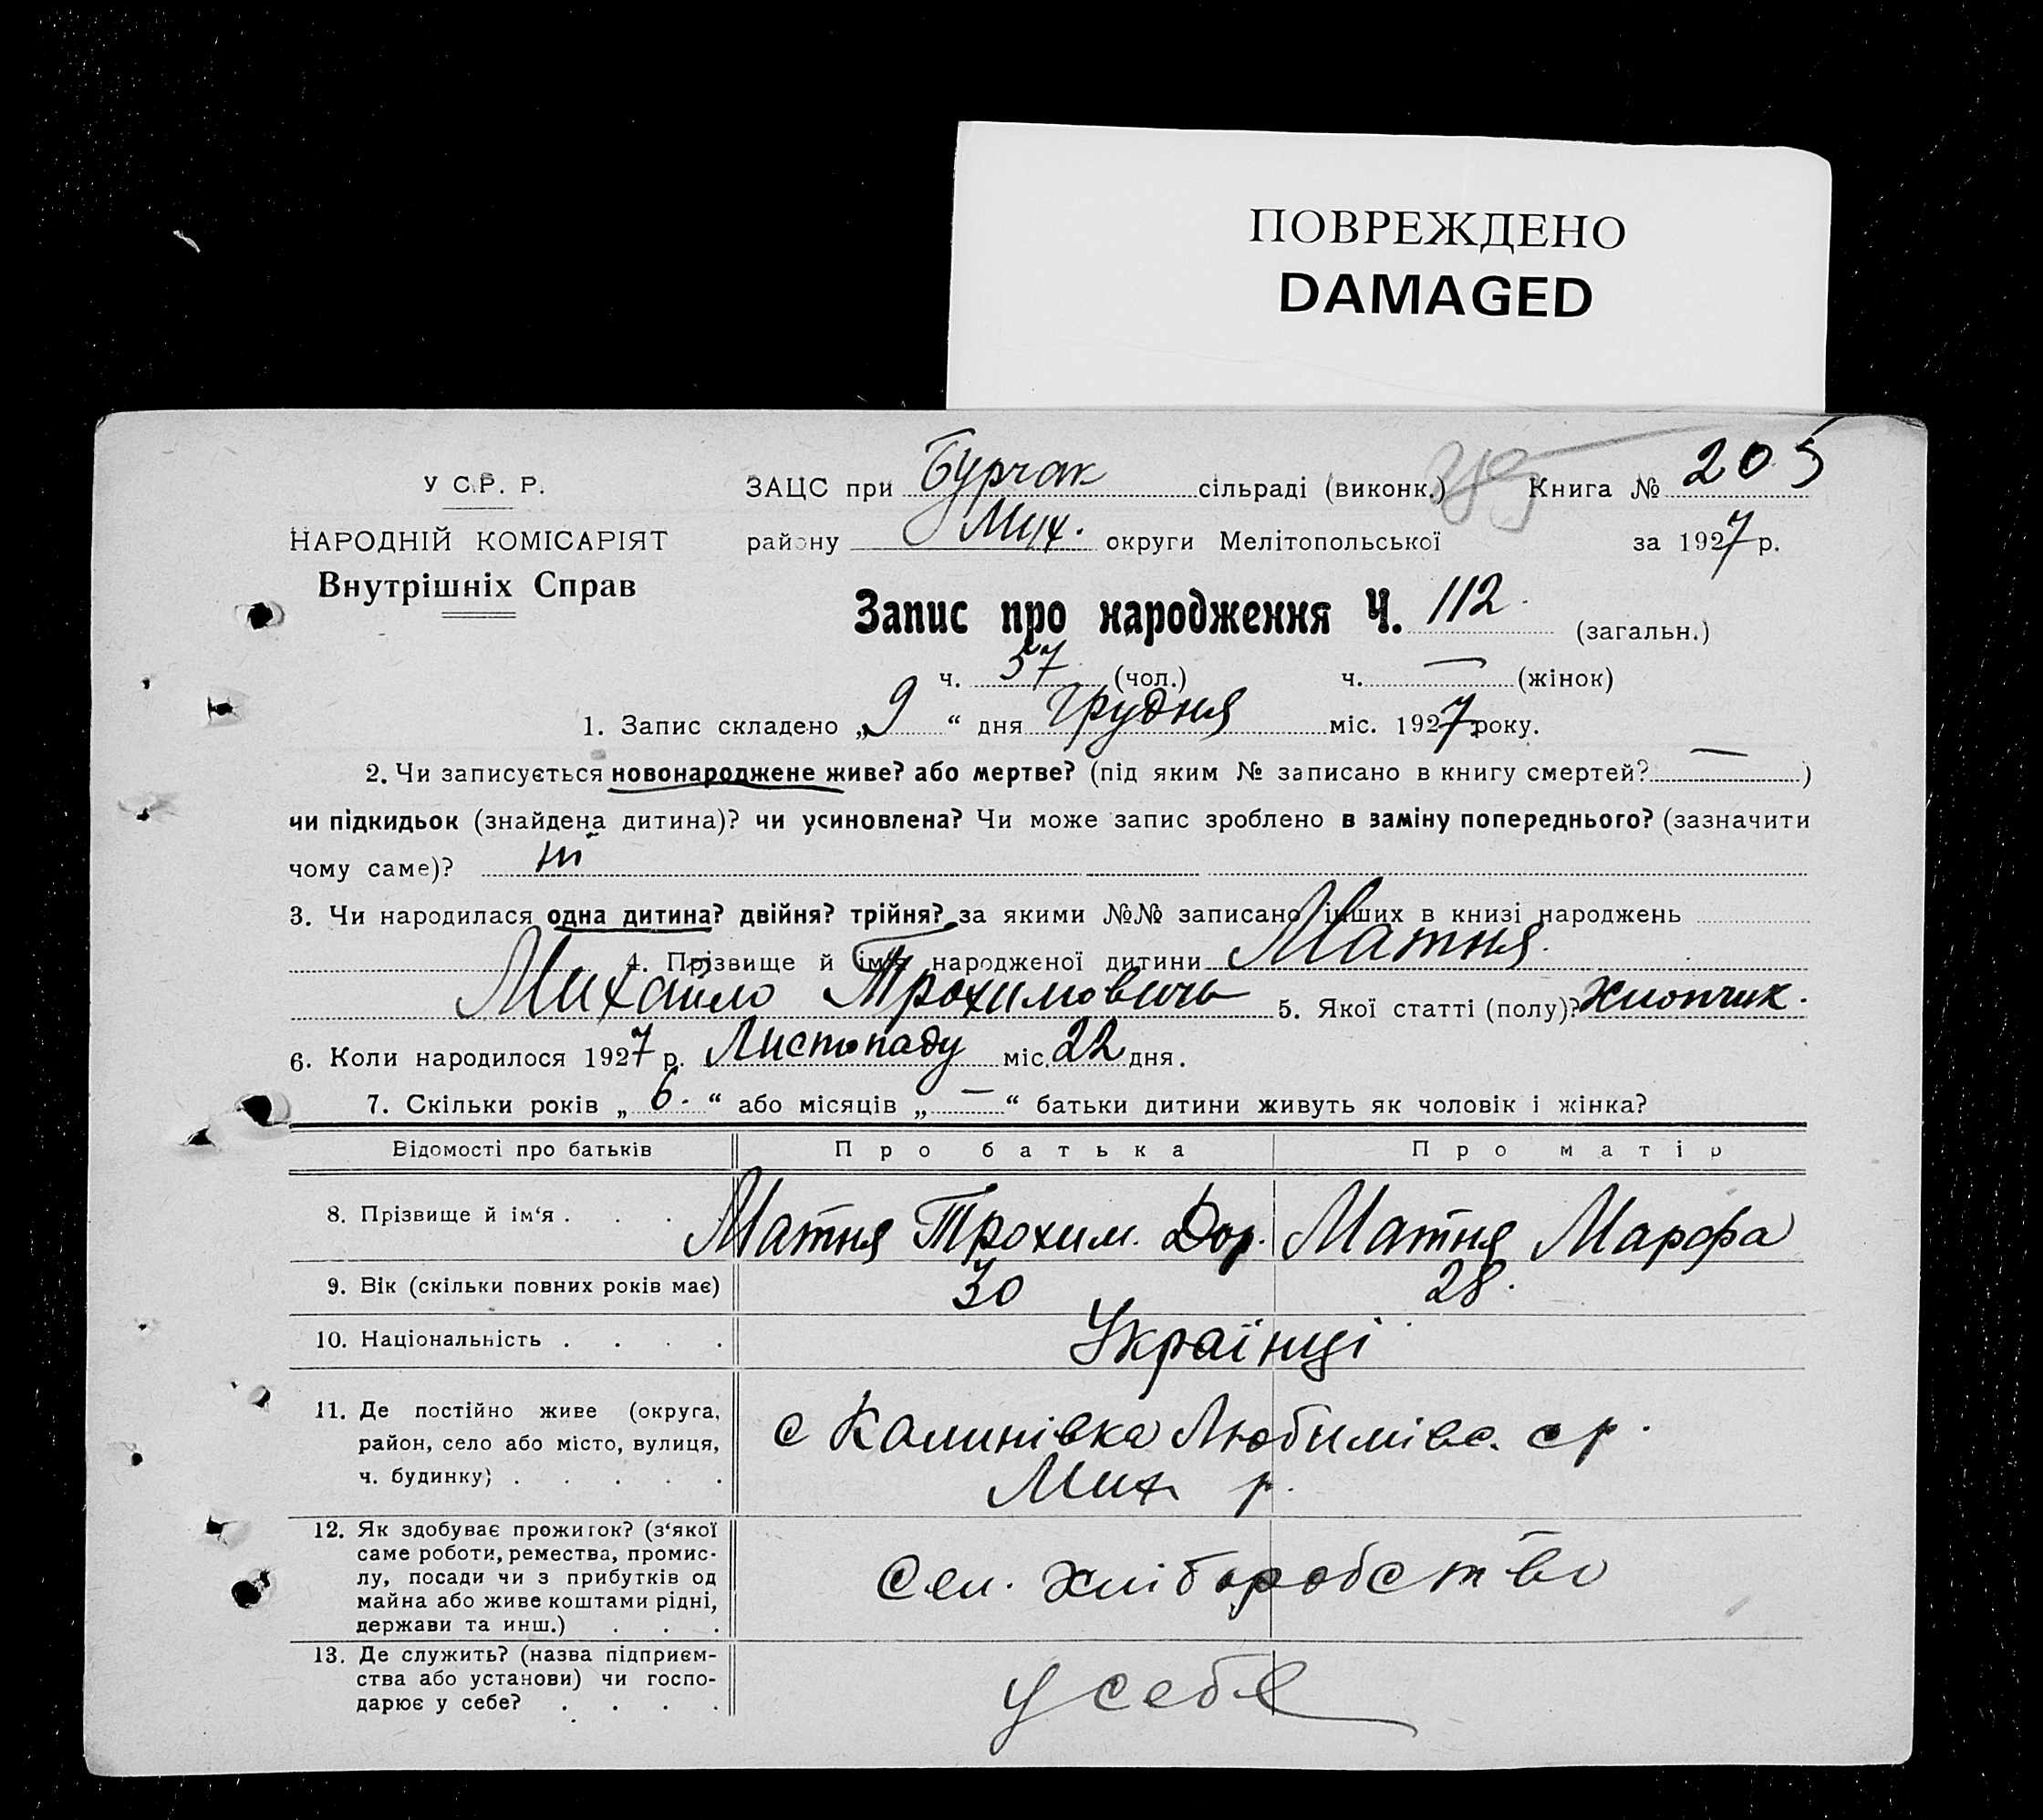 ПОВРЕЖДЕНО
DAMAGED
У С.Р. Р.
НАРОДНІЙ КОМІСАРІЯТ
Внутрішніх Справ
ЗАЦС при Бурчак сільраді (виконк.) Книга № 205
району Мих. округи Мелітопольської за 1927 р.
Запис про народження Ч. 112. (загальн.)
ч. 57 (чол.) ч. — (жінок)
1. Запис складено „9“ дня Грудня міс. 1927 року.
2. Чи записується новонароджене живе? або мертве? (під яким № записано в книгу смертей? — )
чи підкидьок (знайдена дитина)? чи усиновлена? Чи може запис зроблено в заміну попереднього? (зазначити
чому саме)?
3. Чи народилася одна дитина? двійня? трійня? за якими №№ записано інших в книзі народжень
4. Прізвище й ім'я народженої дитини Матня
Михайло Трохимович 5. Якої статті (полу)? Хлопчик.
6. Коли народилося 1927 р. Листопаду міс. 22 дня.
7. Скільки років „6.“ або місяців „—“ батьки дитини живуть як чоловік і жінка?
Відомості про батьків Про батька Про матір
8. Прізвище й ім‘я . . . Матня Трохим. Дор. Матня Марфа
9. Вік (скільки повних років має) 30 28.
10. Національність . . . . Українці
11. Де постійно живе (округа,
район, село або місто, вулиця,
ч. будинку) . . . . .
с Калинівка Любимівс. ср.
Мих р.
12. Як здобуває прожиток? (з‘якої
саме роботи, ремества, промис-
лу, посади чи з прибутків од
майна або живе коштами рідні,
держави та инш.) . . .
Сел. хліборобство
13. Де служить? (назва підприєм-
ства або установи) чи госпо-
дарює у себе? . . . .
у себе